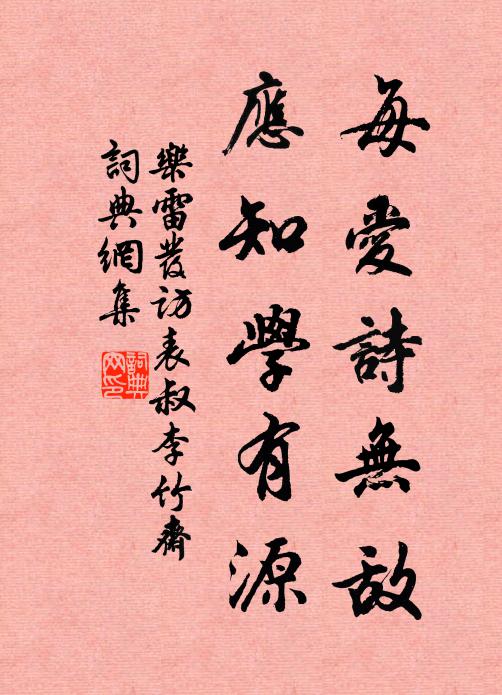 每愛詩無敵
應知學有源
樂雷發訪表叔李竹齋
詞典網集
詞典
网印